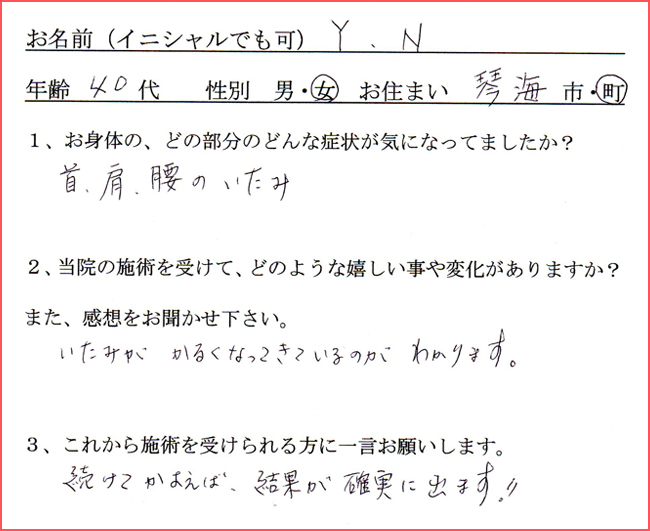 お名前（イニシャルでも可） Y．N
年齢 40代 性別 男・女 お住まい 琴海 市・町
1、お身体の、どの部分のどんな症状が気になってましたか？
首、肩、腰のいたみ
2、当院の施術を受けて、どのような嬉しい事や変化がありますか？
また、感想をお聞かせ下さい。
いたみが かるくなってきているのが わかります。
3、これから施術を受けられる方に一言お願いします。
続けてかよえば、結果が確実に出ます！！